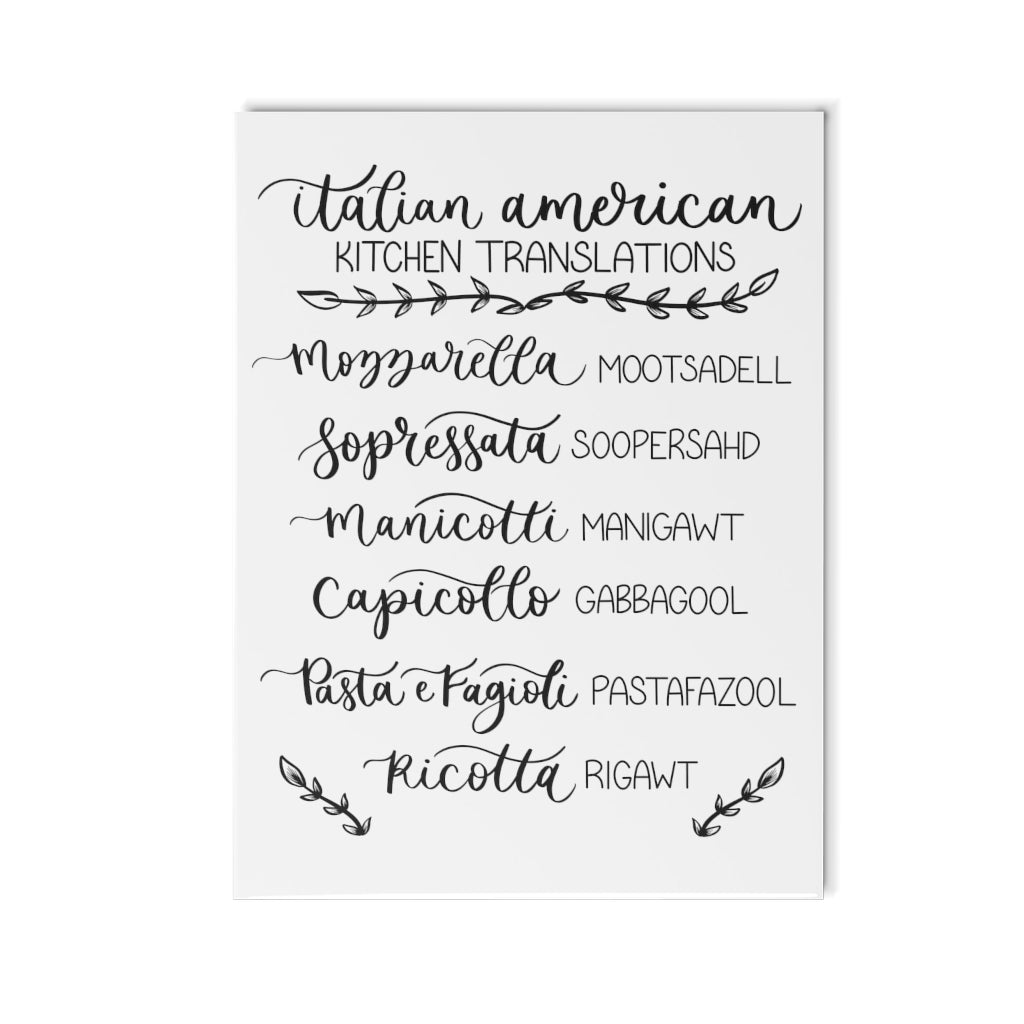 italian american
KITCHEN TRANSLATIONS
Mozzarella MOOTSADELL
Sopressata SOOPERSAHD
Manicotti MANIGAWT
Capicollo GABBAGOOL
Pasta e Fagioli PASTAFAZOOL
Ricotta RIGAWT